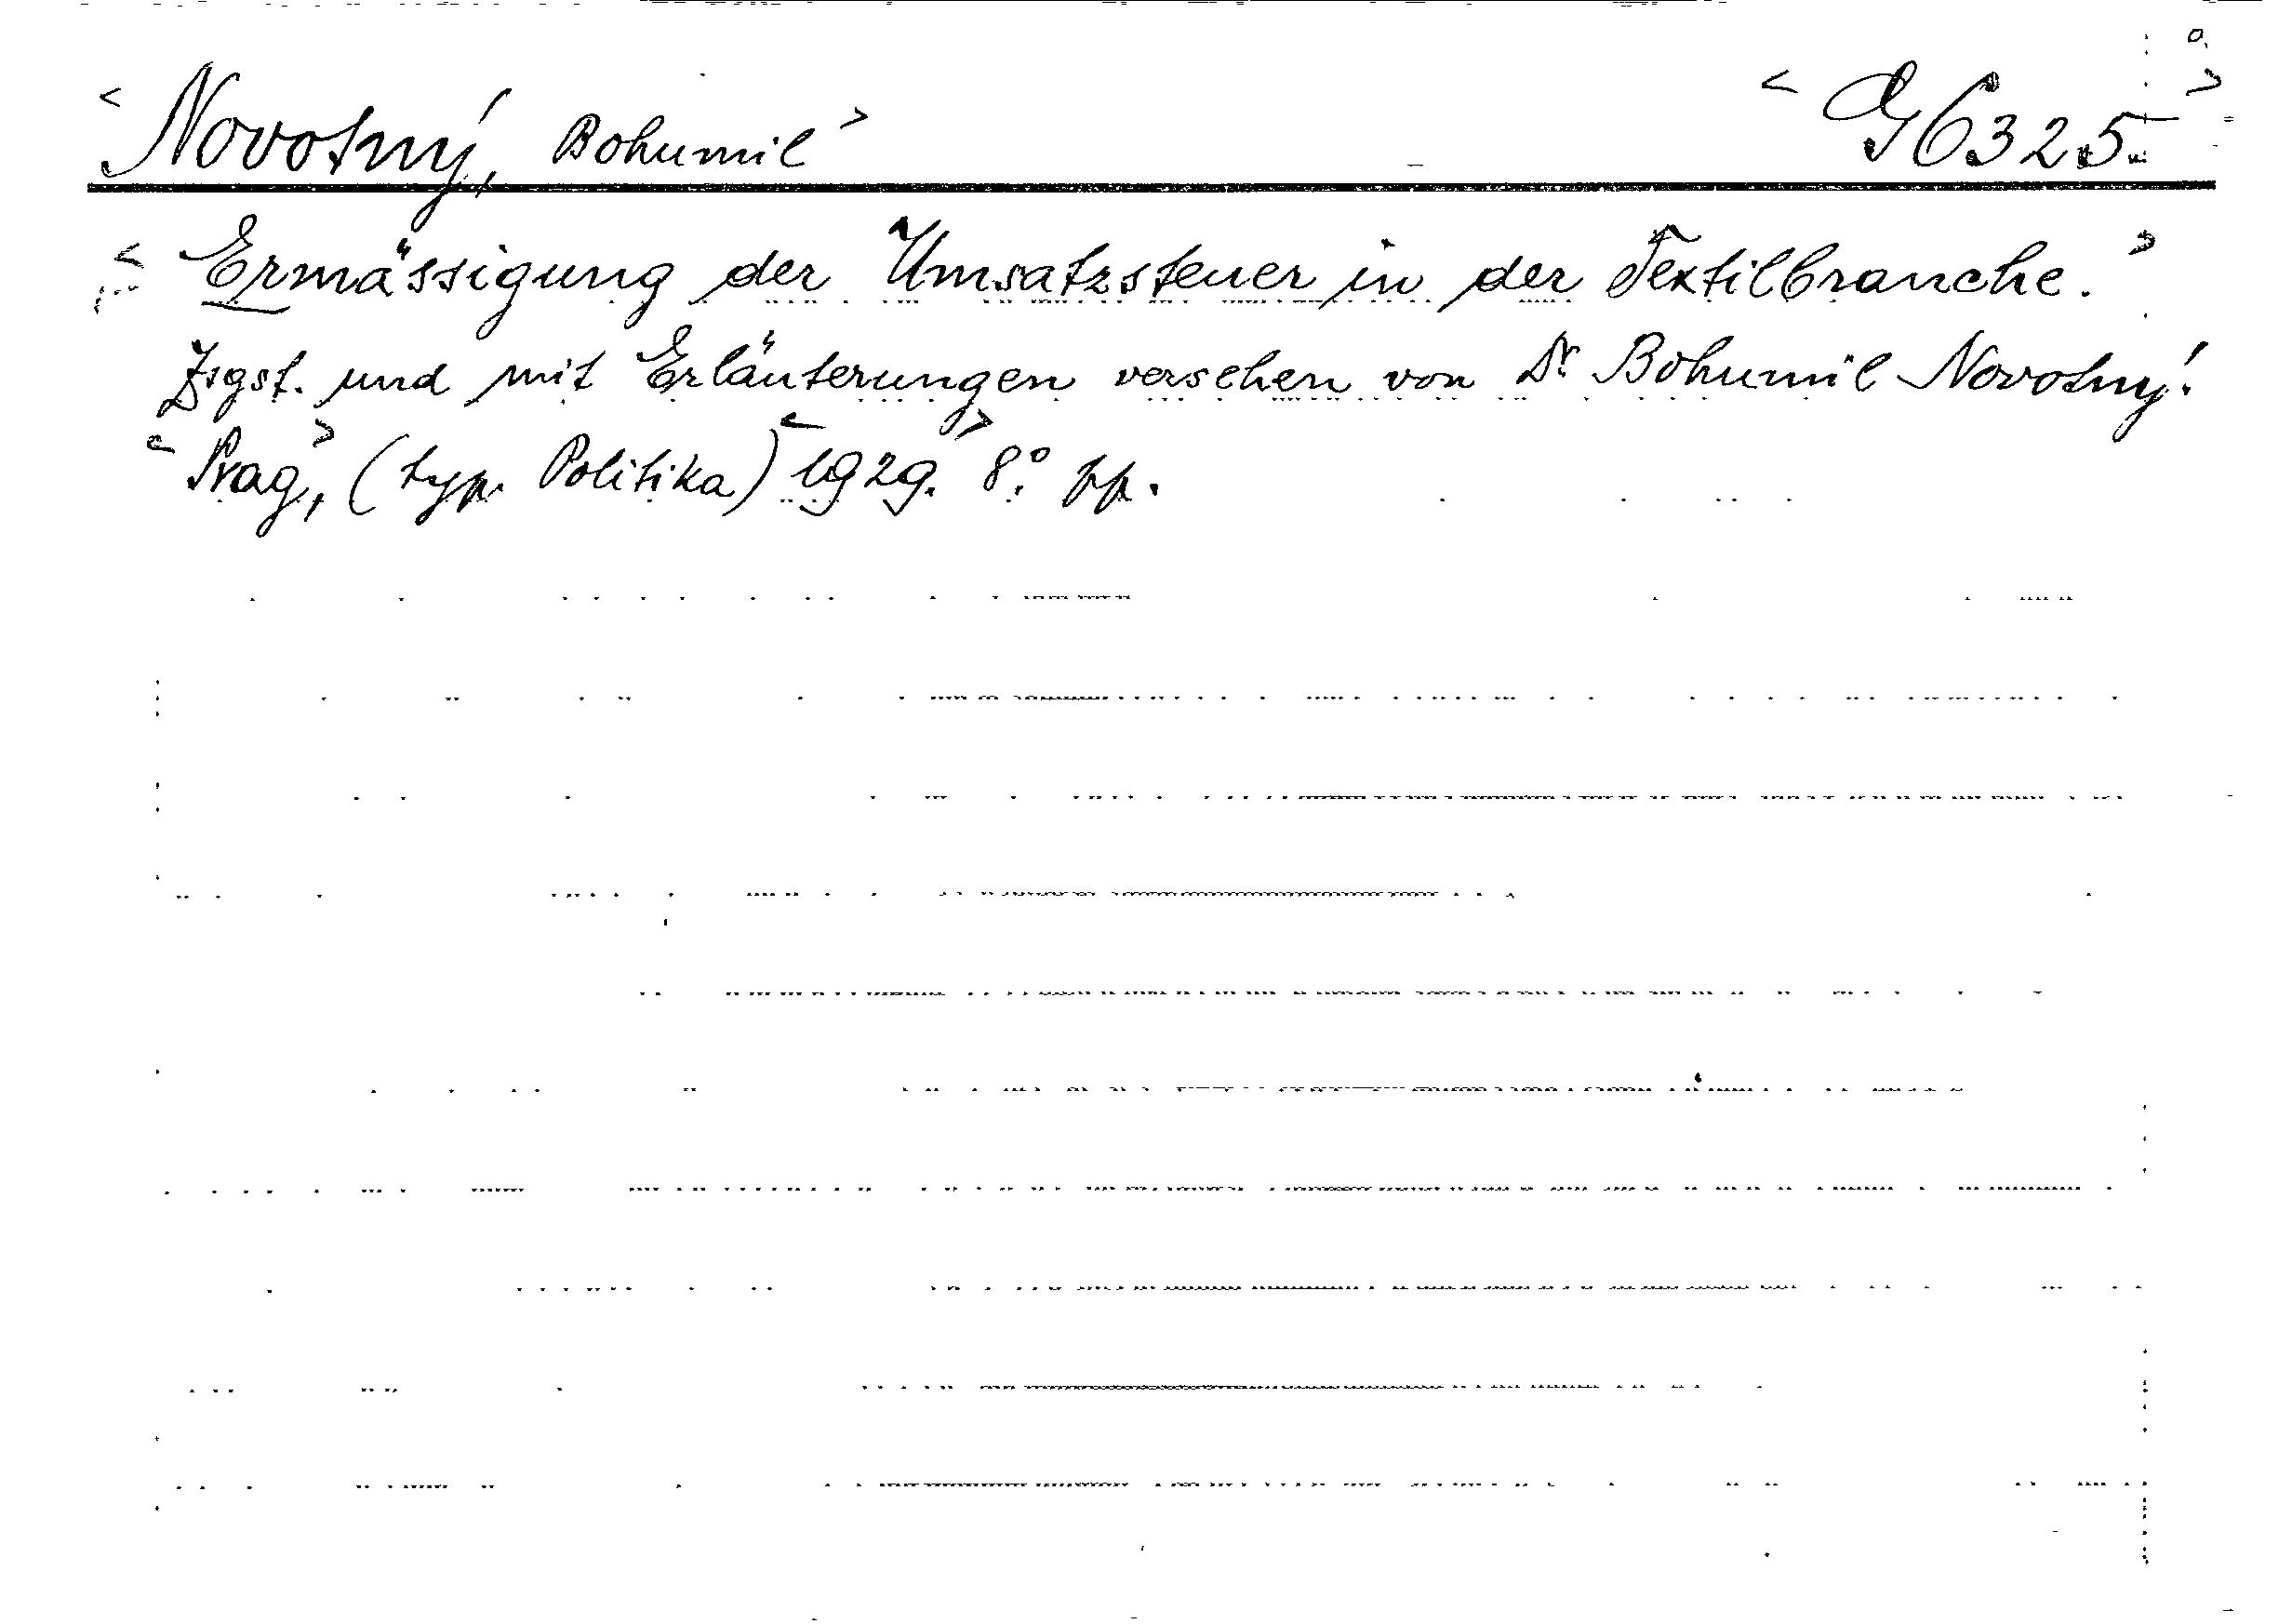 < Novotný, Bohumil > < G 6325. >
< Ermässigung der Umsatzsteuer in der Textilbranche. >
Zsgst. und mit Erläuterungen versehen von Dr Bohumil Novotný.
< Prag, > (typ. Politika) < 1929. > 8°. pp.